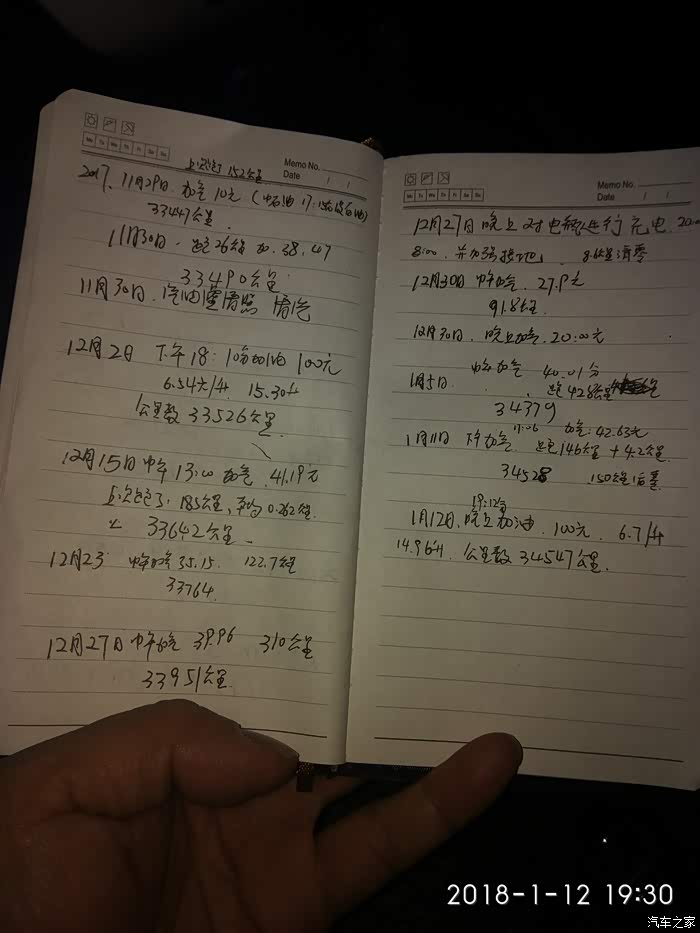 Mo Tu We Th Fr Sa Su
Memo No.
Date / /
上次跑了152公里
2017、11月29日. 加气 10元 (中石油
33447公里.
11月30日. 跑26公里 加. 38.47
33490公里.
11月30日.
12月2日 下午18:10分加油 100元
6.54元/升. 15.30升
公里数 33526公里.
12月15日 中午 13:00 加气. 41.19元
上次跑了. 185公里, 平均 0.262
33642公里.
12月23 中午加气 35.15. 122.7公里
33764.
12月27日 中午加气 39.96 310公里
33951公里.
Mo Tu We Th Fr Sa Su
Memo No.
Date / /
12月27日 晚上对电瓶进行充电.
8:00. 并加强接地 清零
12月30日 中午加气. 27.9元
91.8公里.
12月30日. 晚上加气. 20:00元
1月5日. 中午加气 40.01分
跑428公里
34379
1月11日 下午加气 17:06 加气: 42.63元
跑146公里 + 4.2公里.
34528 150公里
19:12分
1月12日. 晚上加油. 100元. 6.7/升
14.96升. 公里数 34547公里.
2018-1-12 19:30
汽车之家